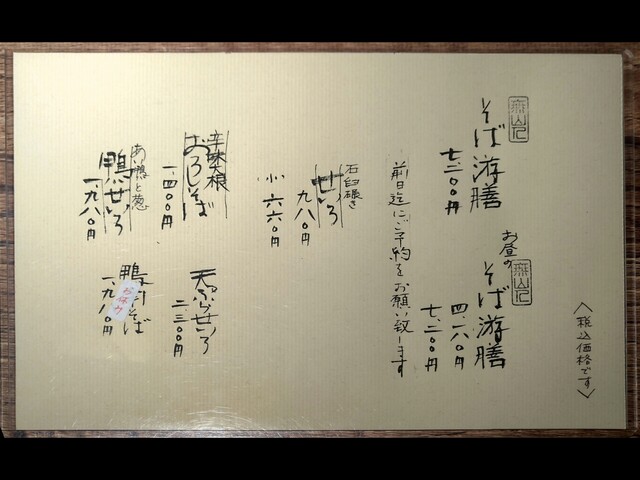 〈税込価格です〉
無山人
そば游膳
七.二〇〇円
お昼の
無山人
そば游膳
四.一八〇円
七.二〇〇円
前日迄にご予約をお願い致します
石臼碾き
せいろ
九八〇円
小 六六〇円
辛味大根
おろしそば
一.四〇〇円
天ぷらせいろ
二.二三〇〇円
あい鴨と葱
鴨せいろ
一.九八〇円
鴨汁そば
お休み
一.九八〇円